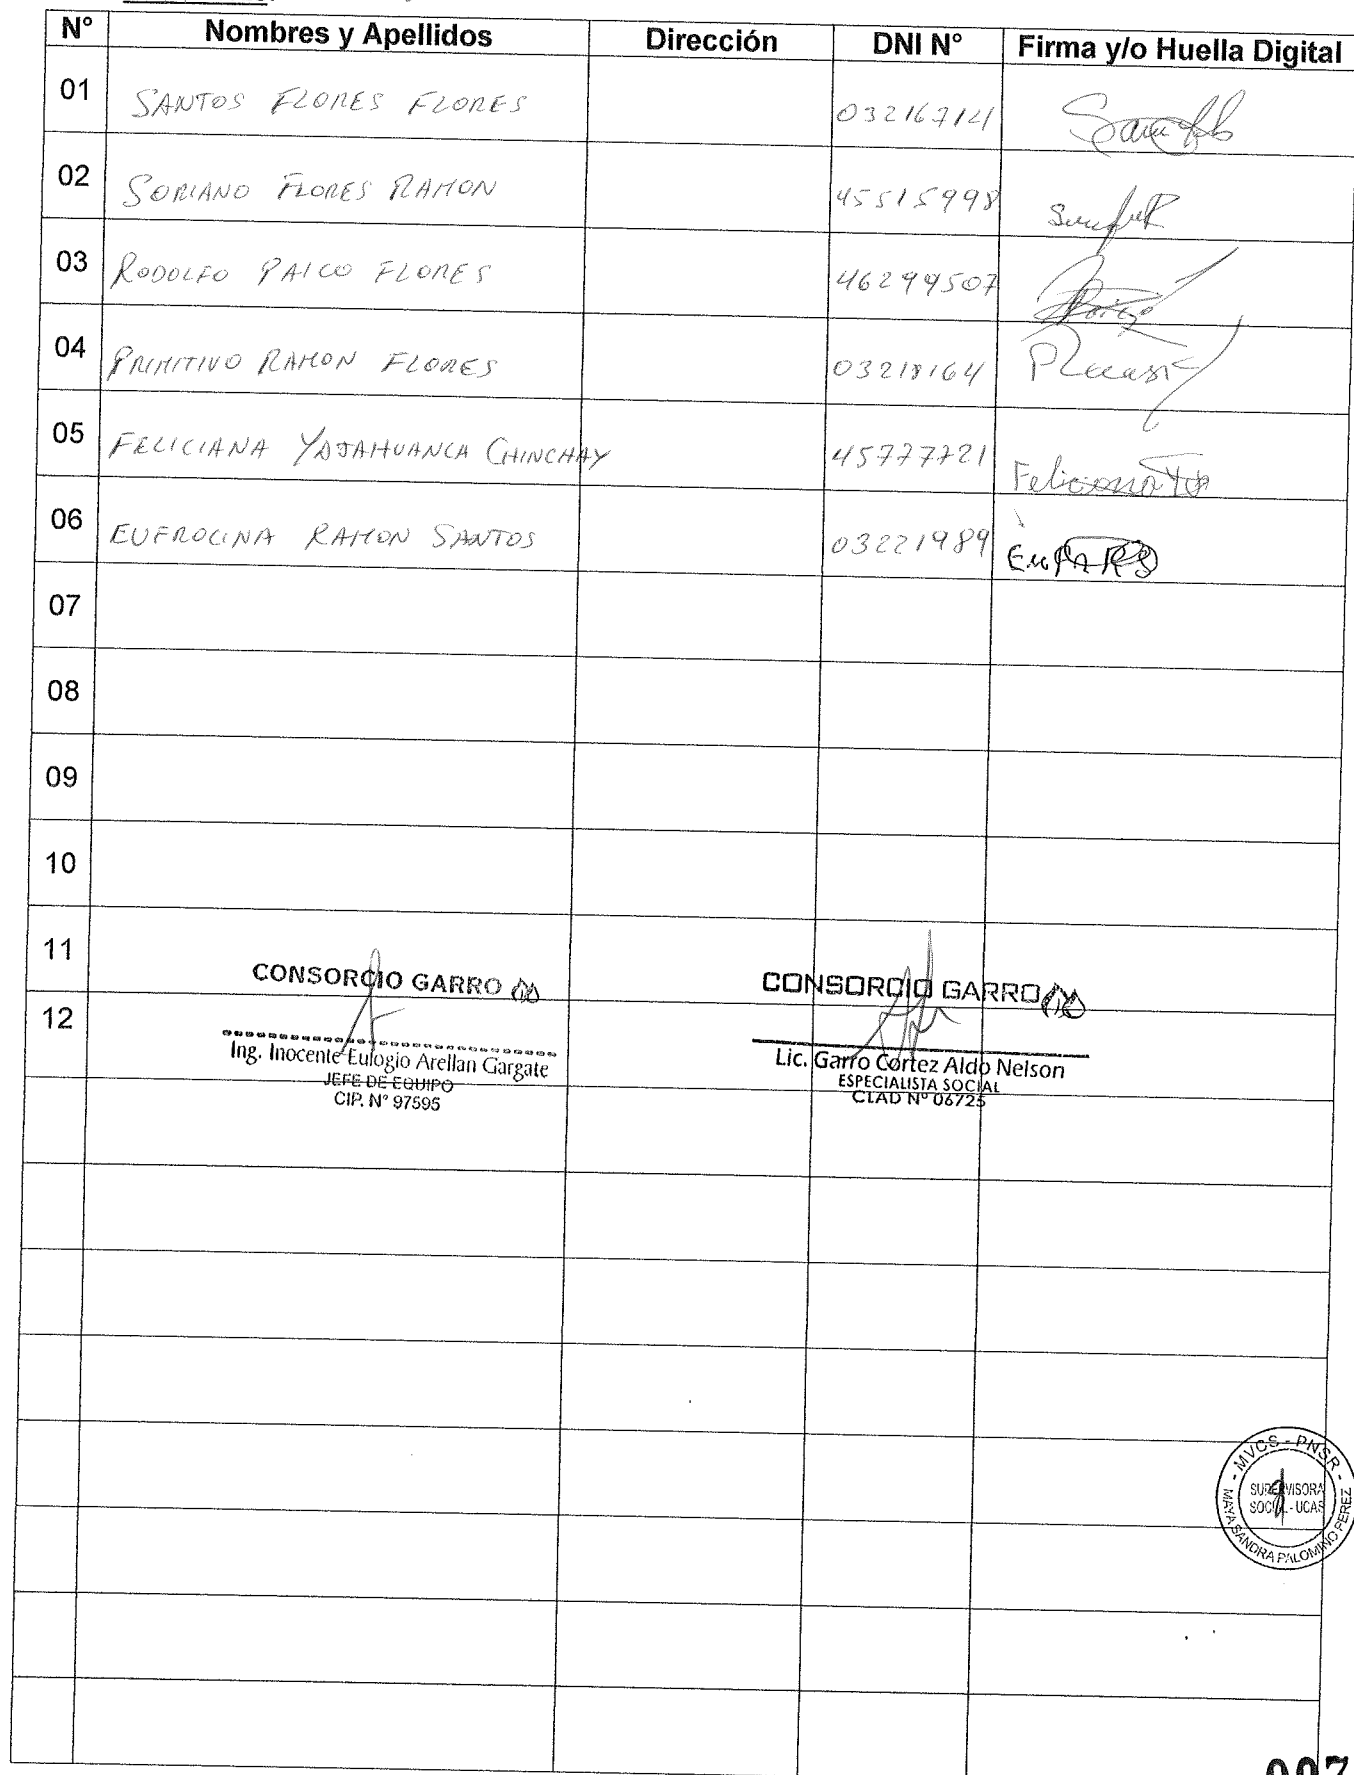 N° Nombres y Apellidos Dirección DNI N° Firma y/o Huella Digital
01 SANTOS FLORES FLORES
02 SORIANO FLORES RAMON 45515998
03 RODOLFO PAICO FLORES 46299507
04 PRIMITIVO RAMON FLORES 03218164
05 FELICIANA YAJAHUANCA CHINCHAY 45777721
06 EUFROCINA RAMON SANTOS 03221989
07
08
09
10
11
12
CONSORCIO GARRO
Ing. Inocente Eulogio Arellan Gargate
JEFE DE EQUIPO
CIP. N° 97595
CONSORCIO GARRO
Lic. Garro Cortez Aldo Nelson
ESPECIALISTA SOCIAL
CLAD N° 06725
MVCS - PNSR
SUPERVISORA
SOCIAL - UCAS
SANDRA PALOMINO PEREZ
007